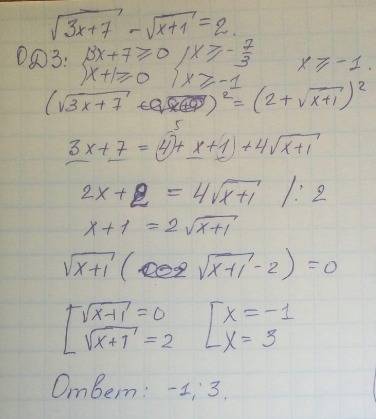 √(3x+7) - √(x+1) = 2.
ОДЗ: {3x+7 ≥ 0 {x ≥ -7/3
{x+1 ≥ 0 {x ≥ -1 x ≥ -1.
(√(3x+7))² = (2+√(x+1))²
5
3x+7 = 4+x+1+4√(x+1)
2x+2 = 4√(x+1) /: 2
x+1 = 2√(x+1)
√(x+1) (√(x+1) - 2) = 0
[√(x+1) = 0 [x = -1
[√(x+1) = 2 [x = 3
Ответ: -1; 3.